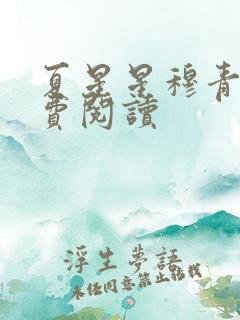 夏星星穆青
費閱讀
浮生夢語
未經同意禁止轉載